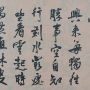 興來每獨往
勝事空自知
行到水窮處
坐看雲起時